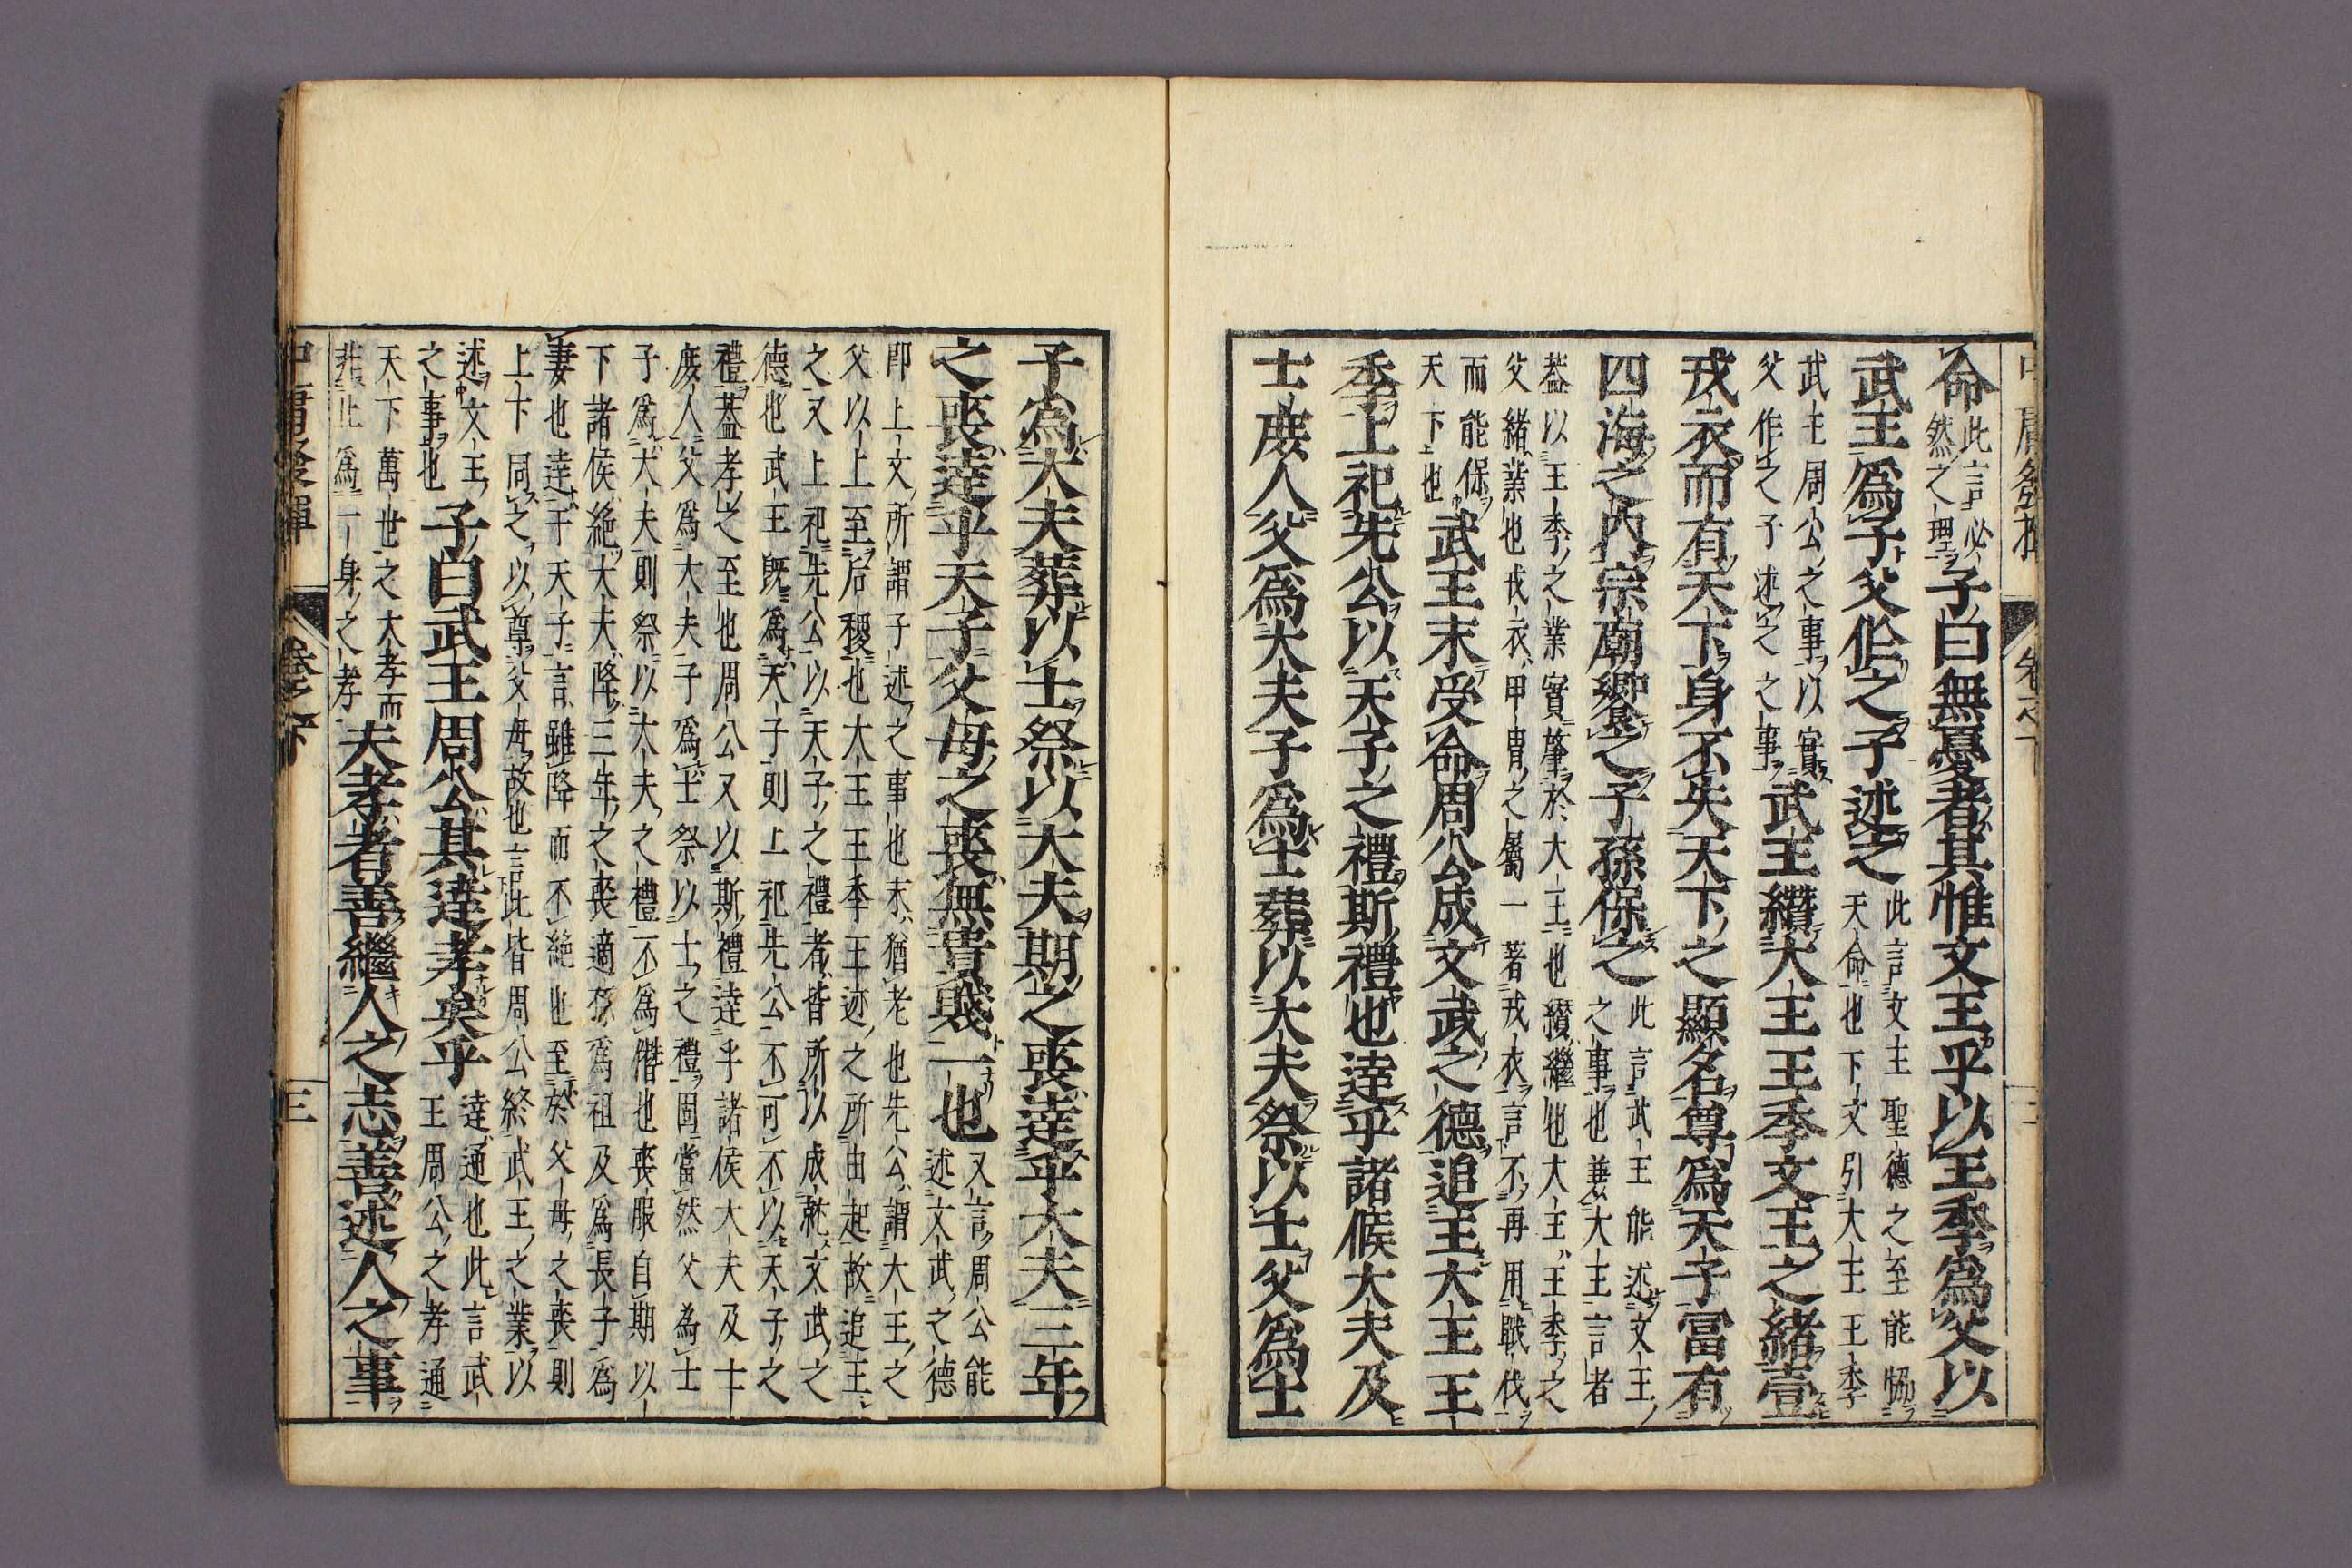 命此言必
然之理子曰無憂者其惟文王乎以王季爲父以
武王爲子父作之子述之此言文王聖德之至能愜
天命也下文引大王王季
武王周公之事以實
父作之子述之之事武王纘大王王季文王之緒壹
戎衣而有天下身不失天下之顯名尊爲天子富有
四海之内宗廟饗之子孫保之此言武王能述文王
之事也兼大王言者
蓋以王季之業實肇於大王也纉繼也大王王季之
父緒業也戎衣甲冑之屬一著戎衣言不再用戰伐
而能保
天下也武王末受命周公成文武之德追王大王王
季上祀先公以天子之禮斯禮也逹乎諸侯大夫及
士庶人父爲大夫子爲士葬以大夫祭以士父爲士
子爲大夫葬以士祭以大夫期之喪逹乎大夫三年
之喪逹乎天子父母之喪無貴賤一也又言周公能
述文武之德
卽上文所謂子述之事也末猶老也先公謂大王之
父以上至后稷也大王王季王迹之所由起故追王
之又上祀先公以天子之禮者皆所以成就文武之
德也武王既爲天子則上祀先公不可不以天子之
禮蓋孝之至也周公又以斯禮逹乎諸侯大夫及士
庶人父爲大夫子爲士祭以士之禮固當然父爲士
子爲大夫則祭以大夫之禮不爲僭也喪服自期以
下諸侯絶大夫降三年之喪適孫爲祖及爲長子爲
妻也逹于天子言雖降而不絶也至於父母之喪則
上下同之以尊父母故也言此皆周公終武王之業以
述文王
之事也子曰武王周公其逹孝矣乎逹通也此言武
王周公之孝通
天下萬世之大孝而
非止爲一身之孝夫孝者善繼人之志善述人之事
中庸發揮 卷之下 三